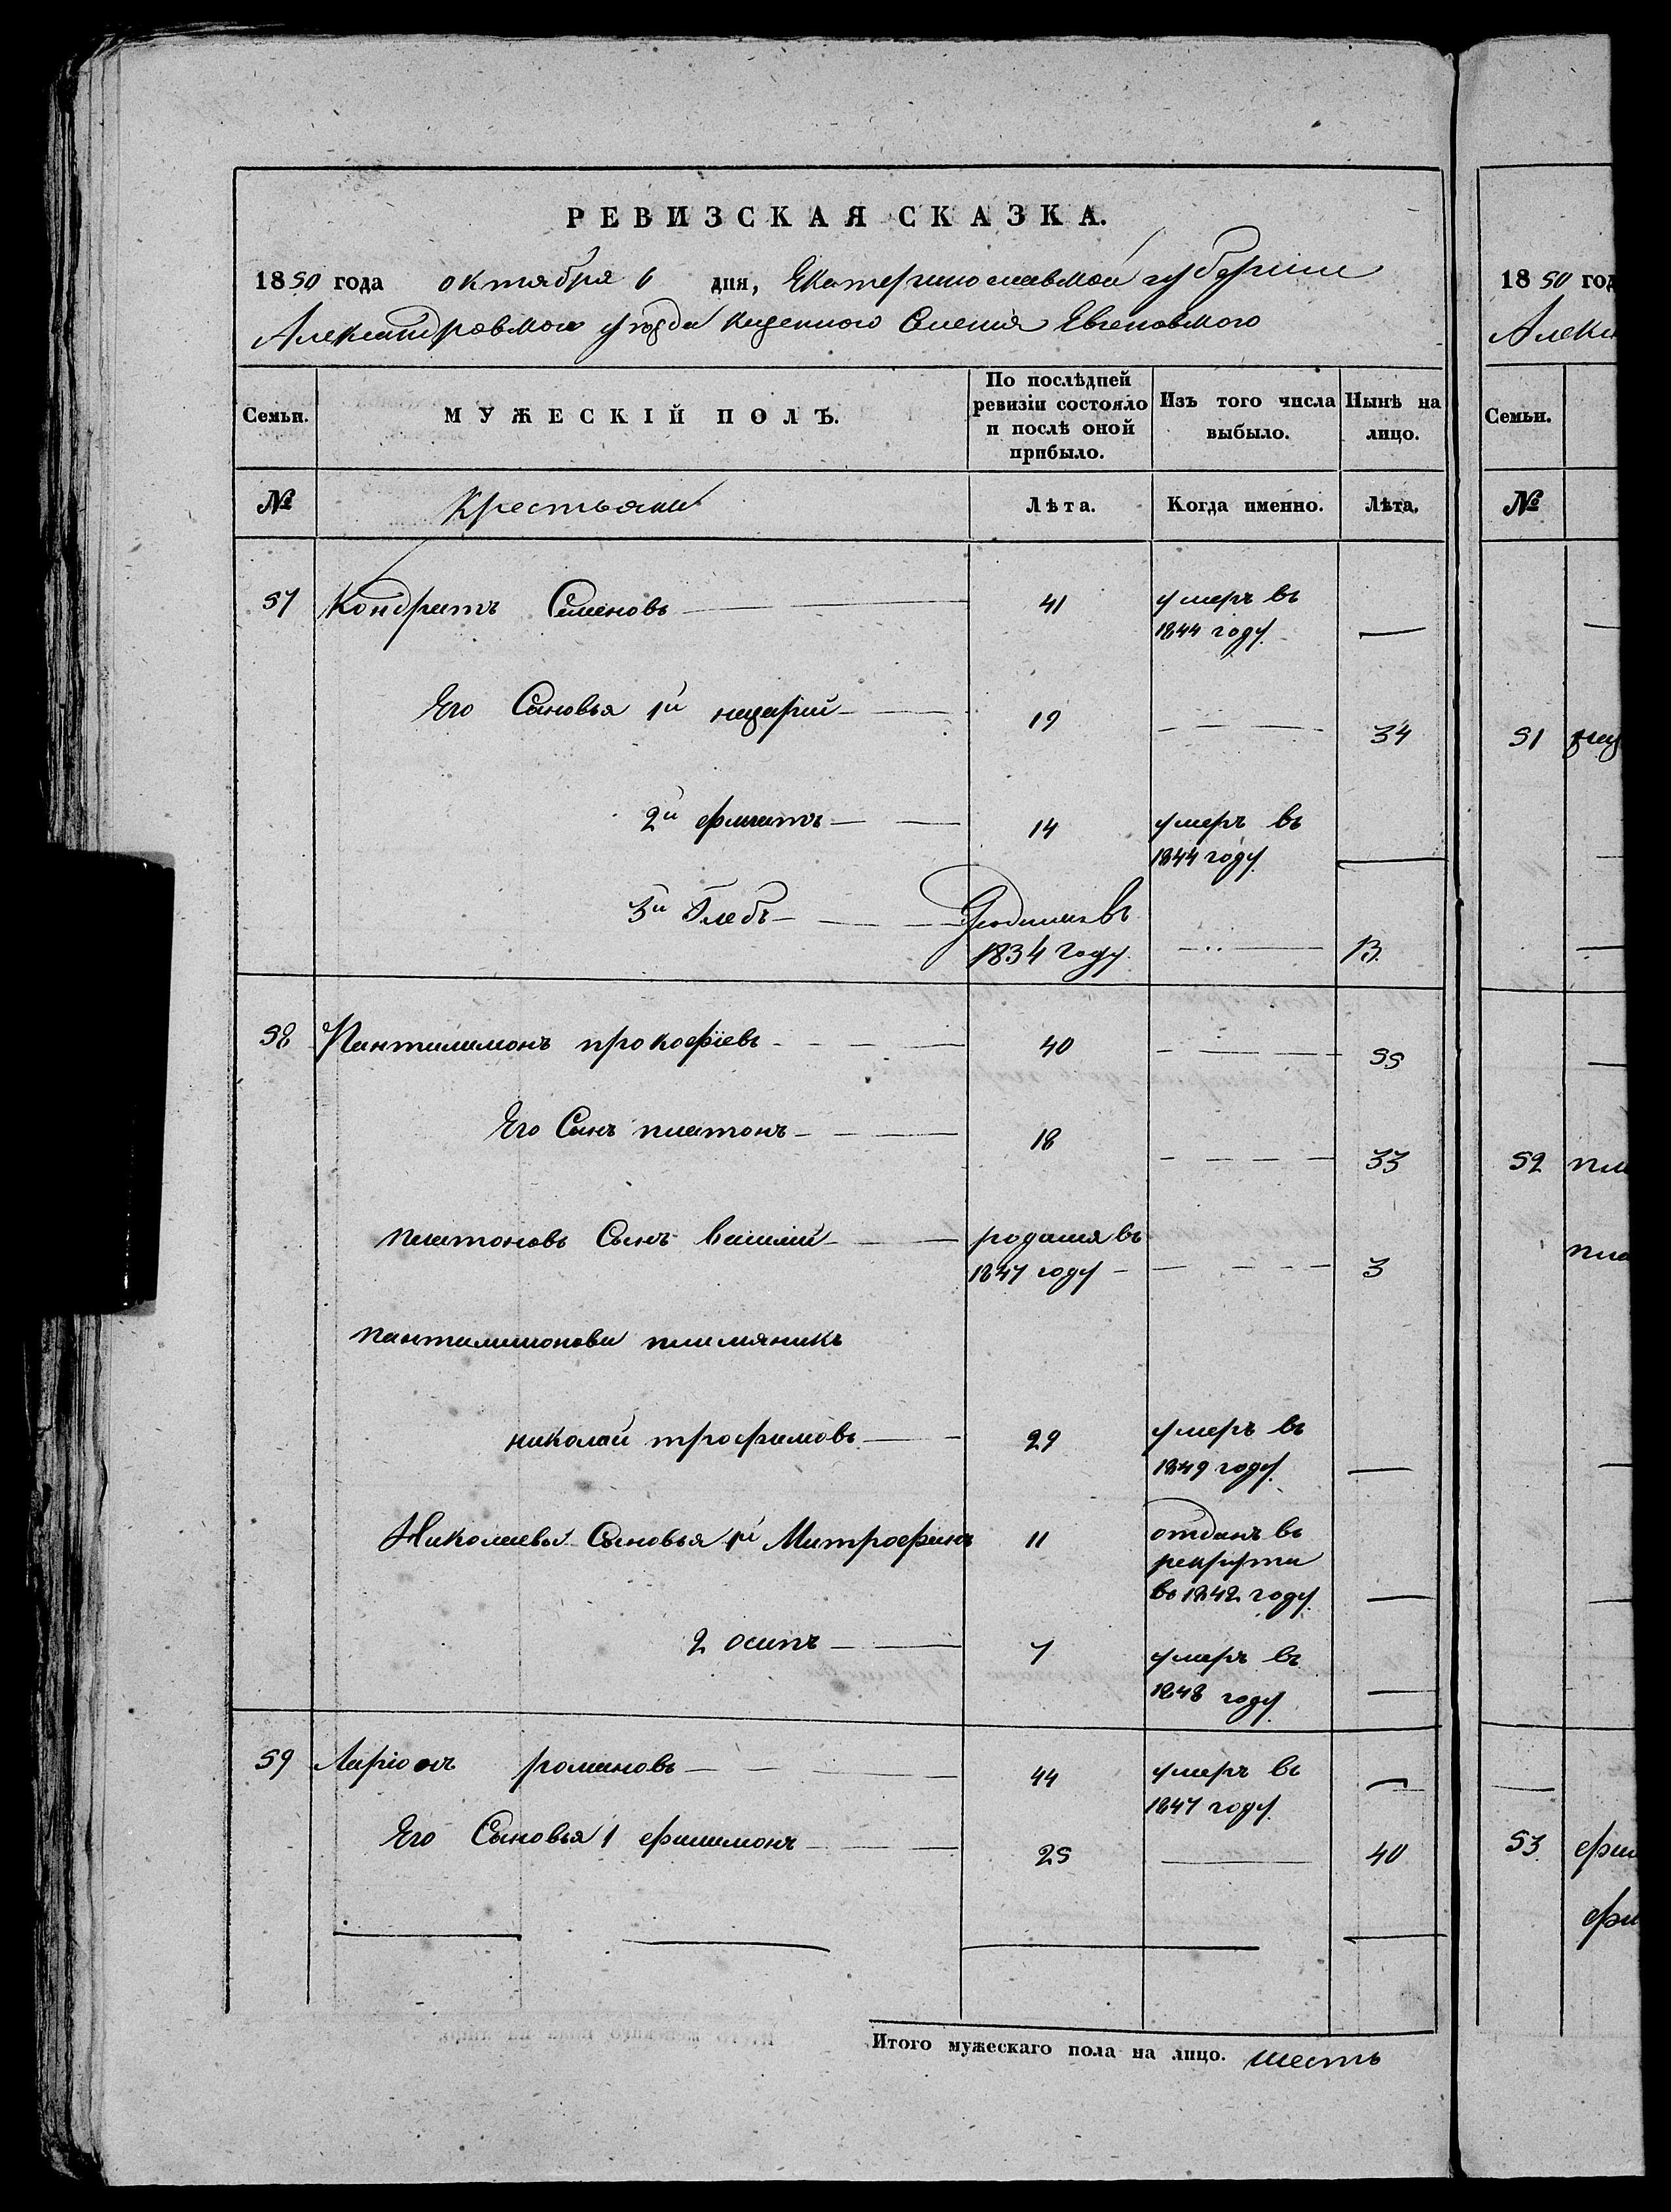 РЕВИЗСКАЯ СКАЗКА.
1850 года октября 6 дня, Екатеринославской губернии
Александровского уезда казенного Селения Евгеновского
Семьи. МУЖЕСКІЙ ПОЛЪ. По послѣдней ревизіи состояло и послѣ оной прибыло. Изъ того числа выбыло. Нынѣ на лицо.
№ Крестьяни Лѣта. Когда именно. Лѣта.
57 Кондратъ Семеновъ 41 умеръ въ
1844 году
Его Сыновья 1й назарій 19 34
2й филатъ 14 умеръ въ
1844 году
3й Глебъ Родился въ
1834 году 13
58 Пантилимонъ прокофіевъ 40 55
Его Сынъ платонъ 18 33
платоновъ Сынъ василій родился въ
1847 году 3
пантилимонови племяникъ
николай трофимовъ 29 умеръ въ
1849 году
Николаевы Сыновья 1й Митрофанъ 11 отданъ въ
рекруты
въ 1842 году
2 осипъ 7 умеръ въ
1848 году
59 Ларіонъ романовъ 44 умеръ въ
1847 году
Его Сыновья 1 филимонъ 25 40
Итого мужескаго пола на лицо. шесть
1850 год
Алекс
Семьи.
№
51 наз
52 пла
пла
53 фил
фи